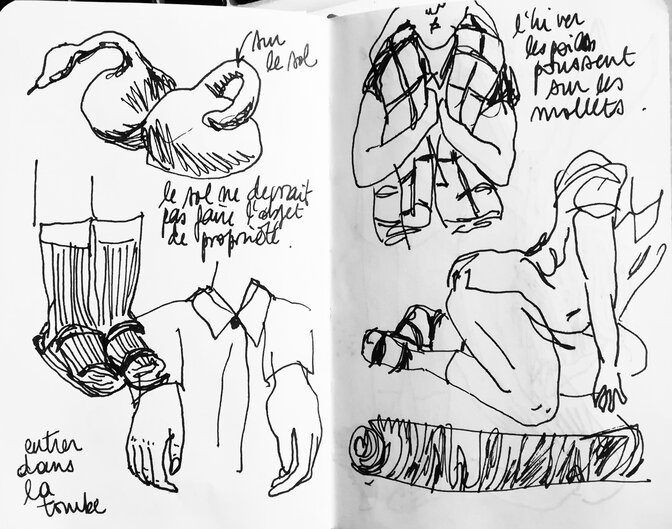 sur
le sol
le sol ne devrait
pas faire l'objet
de propriété.
entrer
dans
la
tombe
l'hiver
les poils
poussent
sur les
mollets.